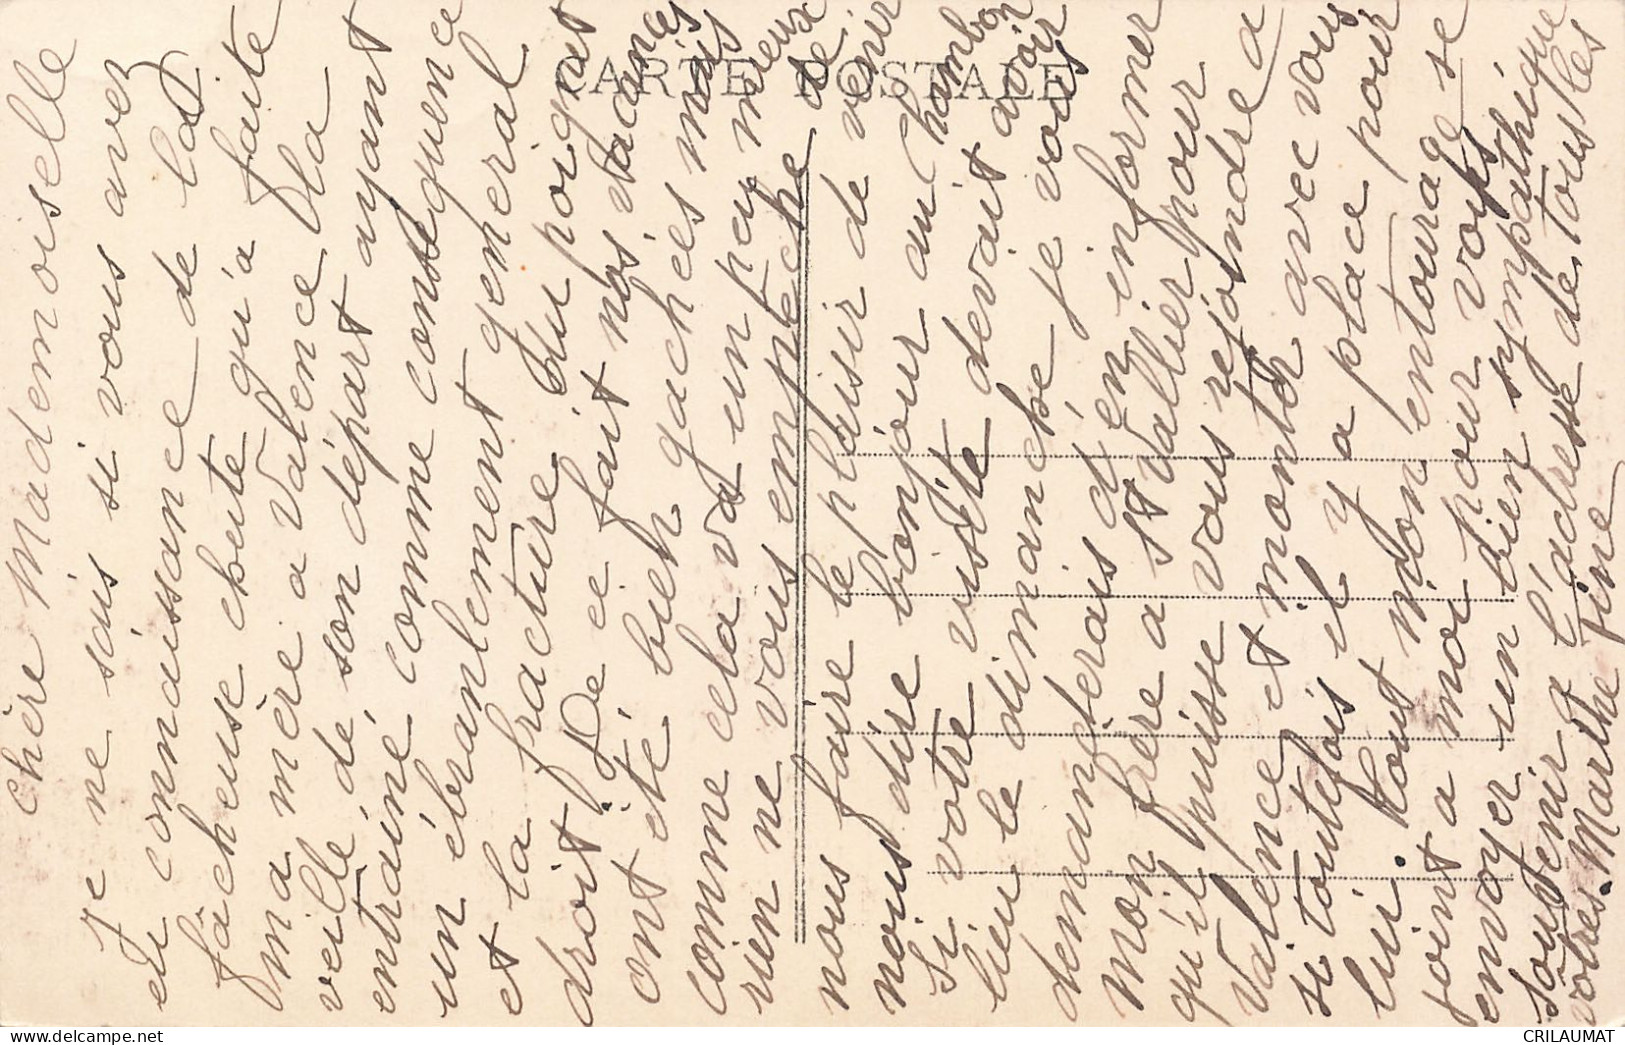 CARTE POSTALE
chère Mademoiselle
Je ne sais si vous avez
eu connaissance de la
fâcheuse chute qu'a faite
ma mère a Valence la
veille de son départ ayant
entrainé comme conséquence
un ébranlement général
et la fracture du poignet
droit. De ce fait nos vacances
ont été bien gachées mais
comme cela va un peu mieux
rien ne vous empêche de
nous faire le plaisir de venir
nous dire bonjour au Chambon
Si votre visite devait avoir
lieu le dimanche je vous
demanderais d'en informer
mon frère a St Vallier pour
qu'il puisse vous rejoindre a
Valence et monter avec vous
si toutefois il y a place pour
lui. Tout mon entourage se
joint a moi pour vous
envoyer un bien sympathique
souvenir a l'adresse de tous les
vôtres. Marthe Fine
CRILAUMAT